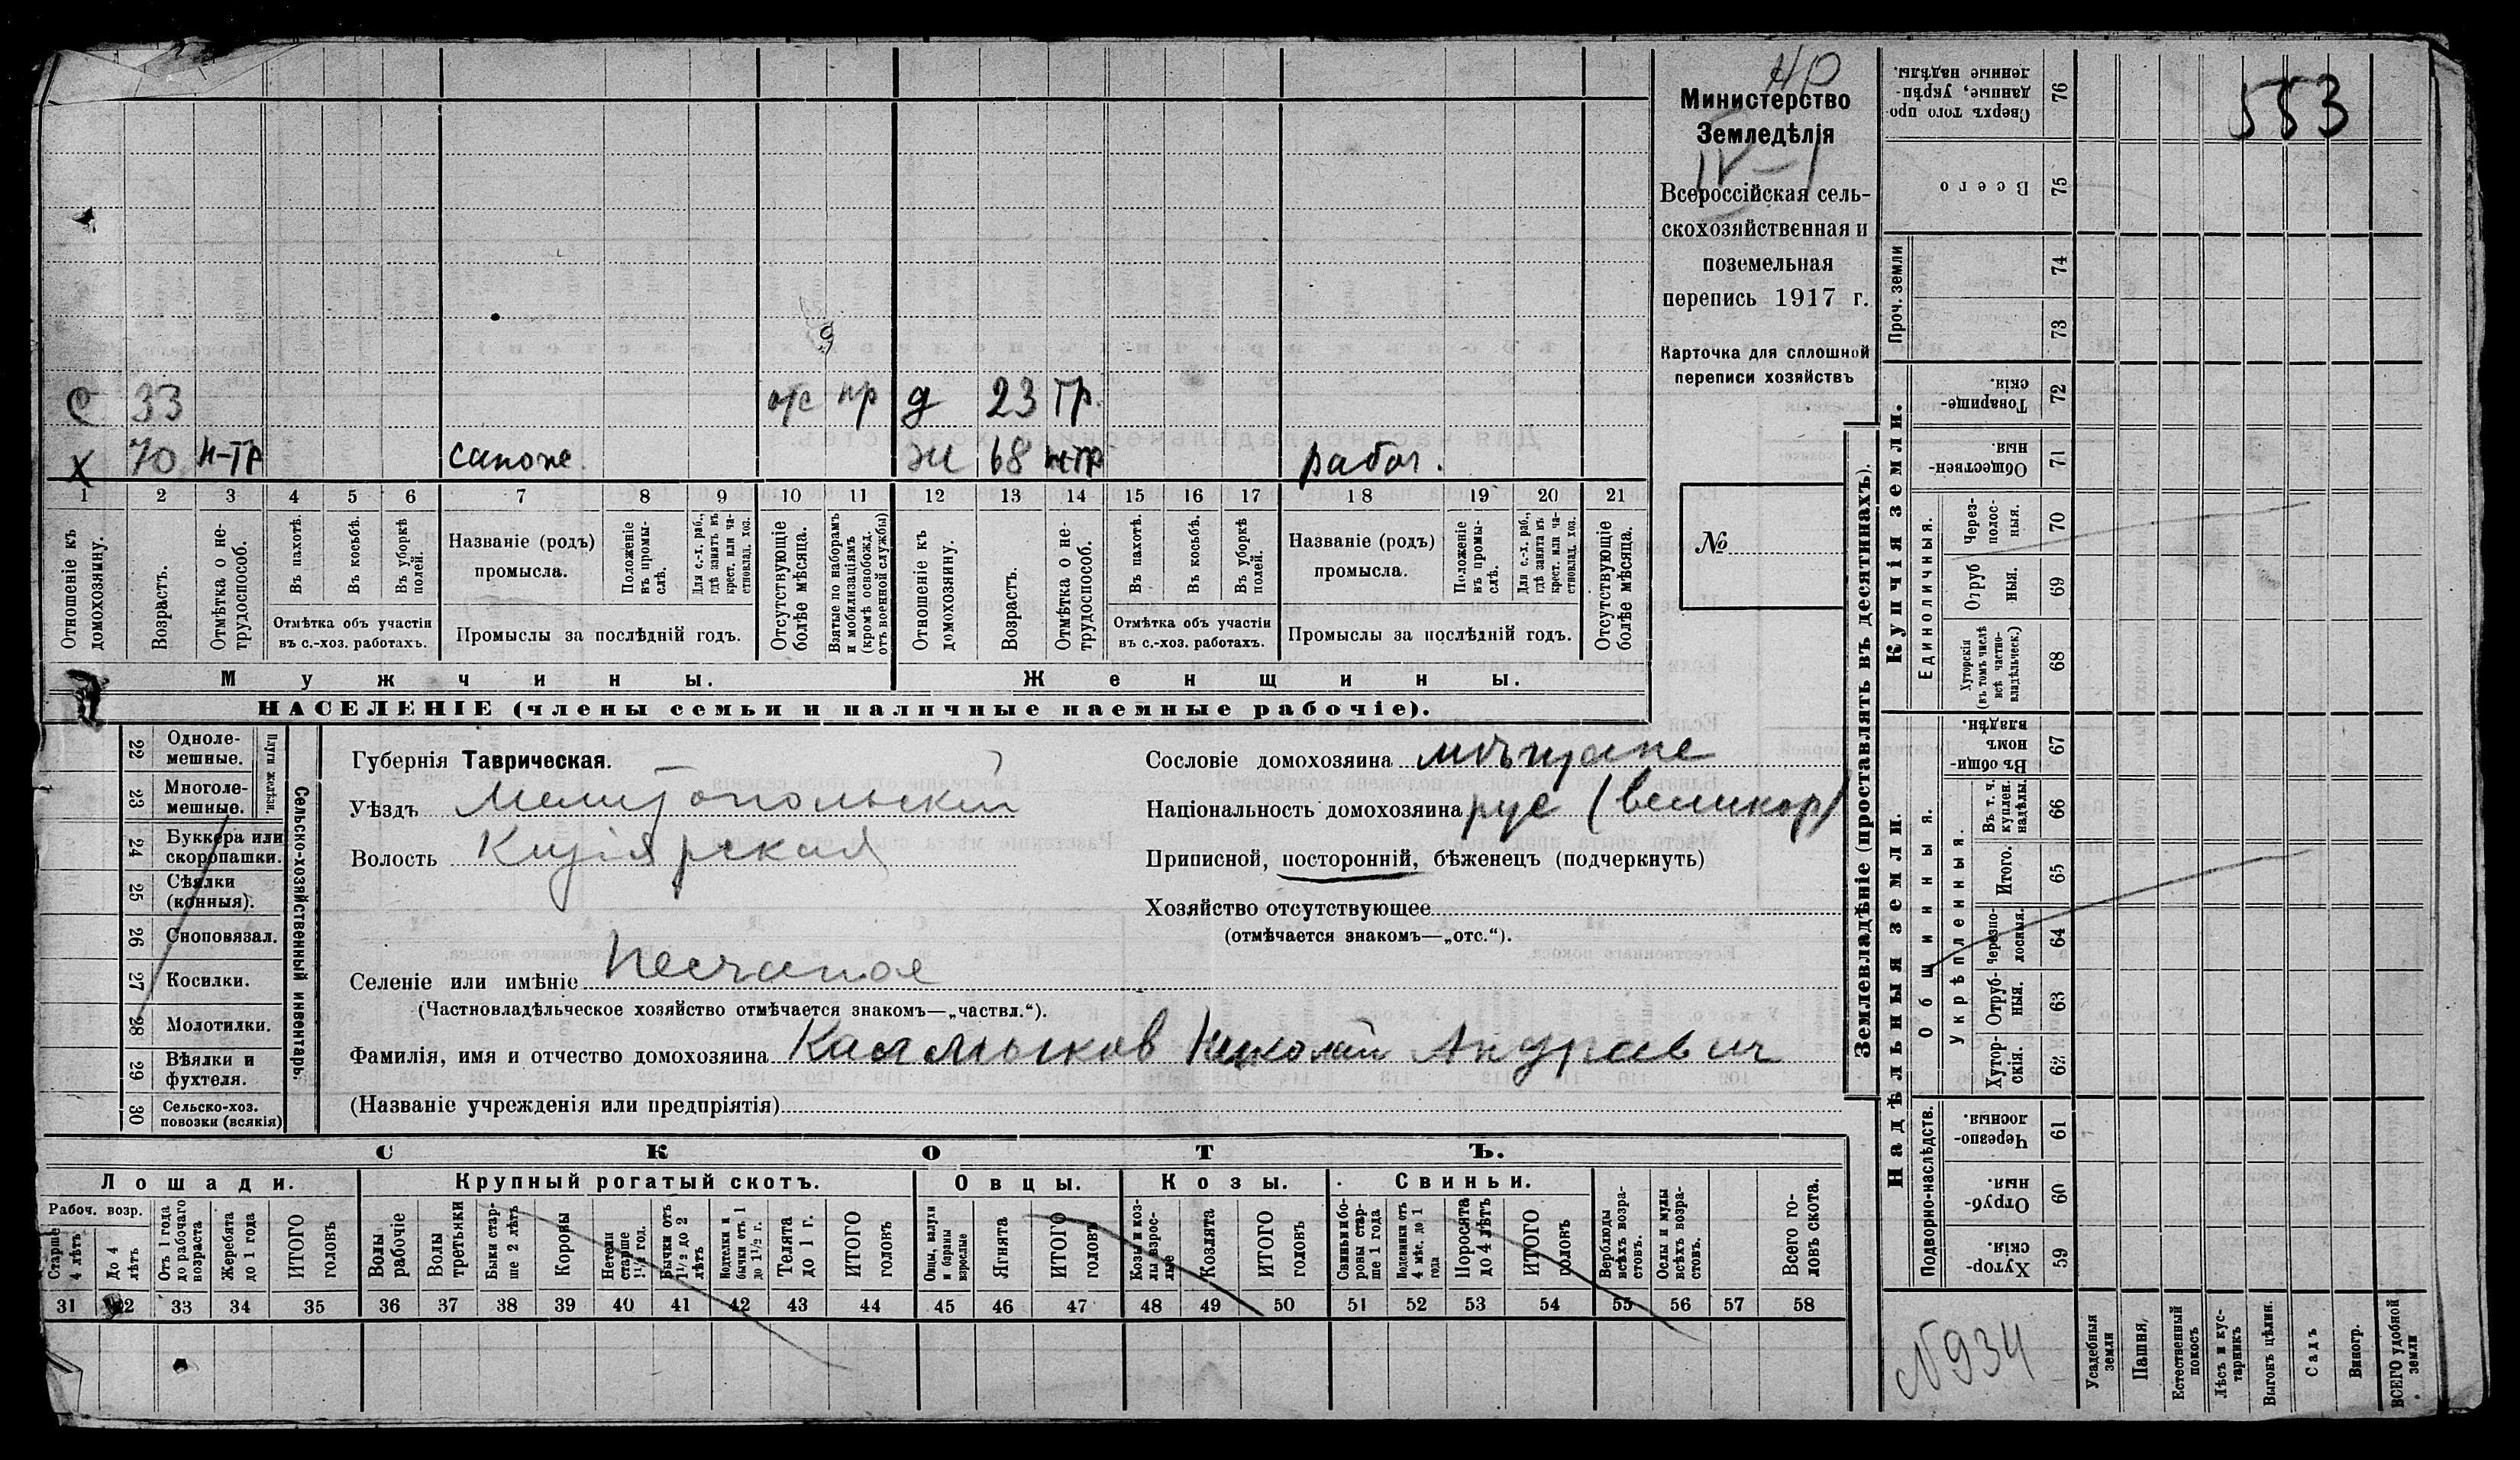 НР
Министерство
Земледѣлія
IV-1
Всероссійская сель-
скохозяйственная и
поземельная
перепись 1917 г.
Карточка для сплошной
переписи хозяйствъ
№
553
9
С 33 отс пр д 23 Гр.
Х 70 н-тр сапож. ж 68 н-тр рабоч.
1 2 3 4 5 6 7 8 9 10 11 12 13 14 15 16 17 18 19 20 21
Отношеніе къ домохозяину.
Возрастъ.
Отмѣтка о не-трудоспособ.
Въ пахотѣ.
Въ косьбѣ.
Въ уборкѣ полей.
Отмѣтка объ участіи
въ с.-хоз. работахъ.
Названіе (родъ)
промысла.
Положеніе въ промы-слѣ.
Для с.-х. раб., гдѣ занятъ въ крест. или ча-стновлад. хоз.
Промыслы за послѣдній годъ.
Отсутствующіе болѣе мѣсяца.
Взятые по наборамъ и мобилизаціямъ (кромѣ освобожд. отъ военной службы)
Отношеніе къ домохозяину.
Возрастъ.
Отмѣтка о не-трудоспособ.
Въ пахотѣ.
Въ косьбѣ.
Въ уборкѣ полей.
Отмѣтка объ участіи
въ с.-хоз. работахъ.
Названіе (родъ)
промысла.
Положеніе въ промы-слѣ.
Для с.-х. раб., гдѣ занята въ крест. или ча-стновлад. хоз.
Промыслы за послѣдній годъ.
Отсутствующіе болѣе мѣсяца.
Мужчины. Женщины.
НАСЕЛЕНІЕ (члены семьи и наличные наемные рабочіе).
22 Одноле-мешные.
23 Многоле-мешные.
Плуги желѣзн.
24 Буккера или скоропашки.
25 Сѣялки (конныя).
26 Сноповязал.
27 Косилки.
28 Молотилки.
29 Вѣялки и фухтеля.
30 Сельско-хоз. повозки (всякія)
Сельско-хозяйственный инвентарь.
Губернія Таврическая.
Уѣздъ Мелитопольский
Волость Кизіярская
Селеніе или имѣніе Песчаное
(Частновладѣльческое хозяйство отмѣчается знакомъ—„частвл.“).
Фамилія, имя и отчество домохозяина Калмыков Николай Андравич
(Названіе учрежденія или предпріятія)
Сословіе домохозяина мѣщане
Національность домохозяина рус (великор)
Приписной, посторонній, бѣженецъ (подчеркнуть)
Хозяйство отсутствующее
(отмѣчается знакомъ—„отс.“).
СКОТЪ.
Лошади. Крупный рогатый скотъ. Овцы. Козы. Свиньи.
Рабоч. возр.
Старше 4 лѣтъ
До 4 лѣтъ
Отъ 1 года до рабочаго возраста
Жеребята до 1 года
ИТОГО головъ
Волы рабочіе
Волы третьяки
Быки стар-ше 2 лѣтъ
Коровы
Нетели старше 1½ год.
Бычки отъ 1½ до 2 лѣтъ
Подтелки и бычки отъ 1 до 1½ г.
Телята до 1 г.
ИТОГО головъ
Овцы, валухи и бараны взрослые
Ягнята
ИТОГО головъ
Козы и коз-лы взрос-лые
Козлята
ИТОГО головъ
Свиньи и бо-ровы стар-ше 1 года
Подсвинки отъ 4 мѣс. до 1 года
Поросята до 4 лѣтъ
ИТОГО головъ
Верблюды всѣхъ возра-стовъ.
Ослы и мулы всѣхъ возра-стовъ.
Всего го-ловъ скота.
31 32 33 34 35 36 37 38 39 40 41 42 43 44 45 46 47 48 49 50 51 52 53 54 55 56 57 58
Землевладѣніе (проставлять въ десятинахъ).
Сверхъ того про-данные, укрѣп-ленные надѣлы. 76
Всего 75
Проч. земли
74
73
Купчія земли.
Товарище-скія. 72
Обществен-ныя 71
Единоличныя.
Через-полос-ныя. 70
Отруб ныя. 69
Хуторскія (въ томъ числѣ всѣ частно-владѣльческ.) 68
Надѣльныя земли.
Общинныя.
Въ общи-номъ владѣн. 67
Укрѣпленныя.
Въ т. ч. куплен. надѣлы. 66
Итого. 65
Черезпо-лосныя. 64
Отруб-ныя. 63
Хутор-скія. 62
Подворно-наслѣдств.
Черезпо-лосныя. 61
Отруб-ныя. 60
Хутор-скія. 59
N 934
Усадебныя земли
Пашня,
Естественный покосъ
Лѣсъ и кус-тарникъ
Выгонъ цѣлин.
Садъ
Виногр.
ВСЕГО удобной земли